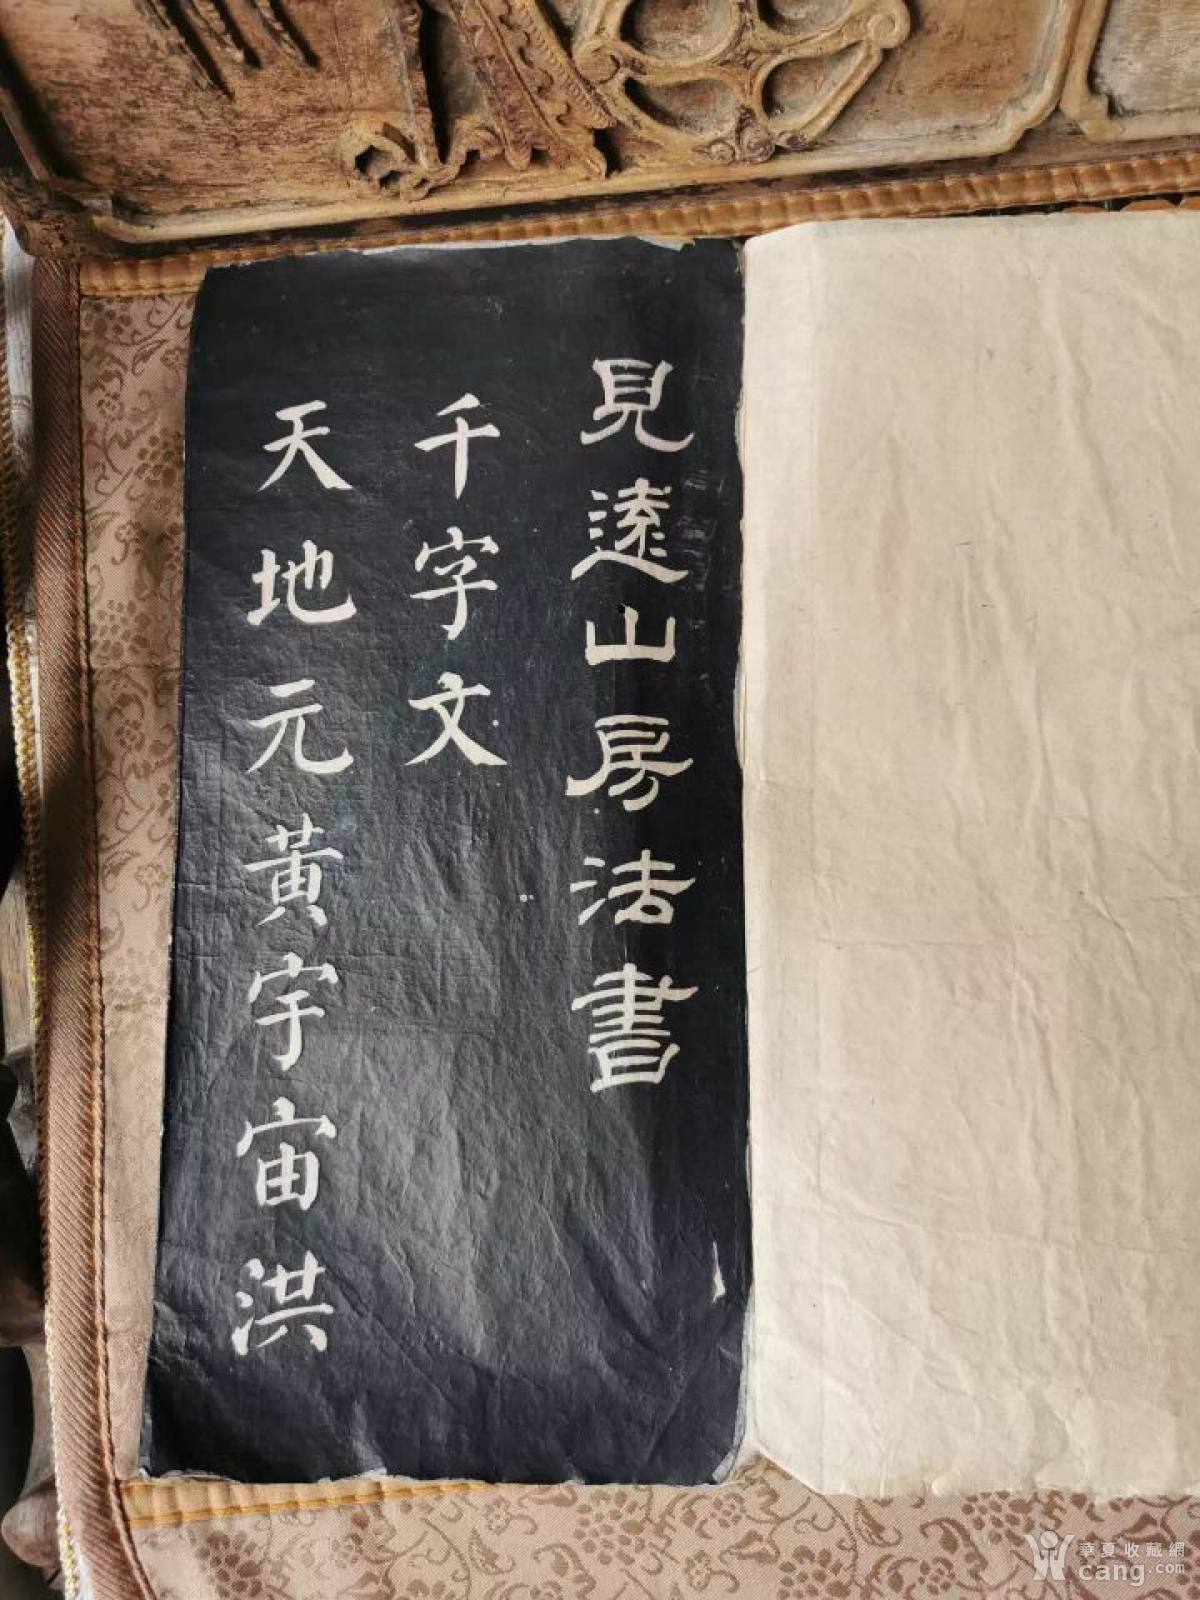 見遠山房法書
千字文
天地元黃宇宙洪
華夏收藏網
cang.com